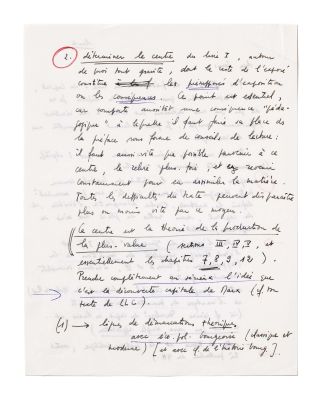 2. déterminer le centre du livre I, autour
de quoi tout gravite, dont le reste de l'exposé
constitue les d'exposition
ou les conséquences. Ce point est essentiel,
car comporte aussitôt une conséquence "péda-
gogique" à laquelle il faut faire sa place ds
la préface sous forme de conseils de lecture:
il faut aussi vite que possible parvenir à ce
centre, le relire plus. fois, et y revenir
constamment pour en assimiler la matière.
Toutes les difficultés du texte peuvent disparaître
plus ou moins vite par ce moyen.
le centre est la théorie de la production de
la plus-value (sections III, IV, V, et
essentiellement les chapitres 7, 8, 9, 12).
Prendre complètement au sérieux l'idée que
c'est la découverte capitale de Marx (cf. mon
texte de L L C).
(1) → lignes de démarcations théoriques
avec éco. pol. bourgeoise (classique et
moderne) [et avec de l'histoire bourg.]